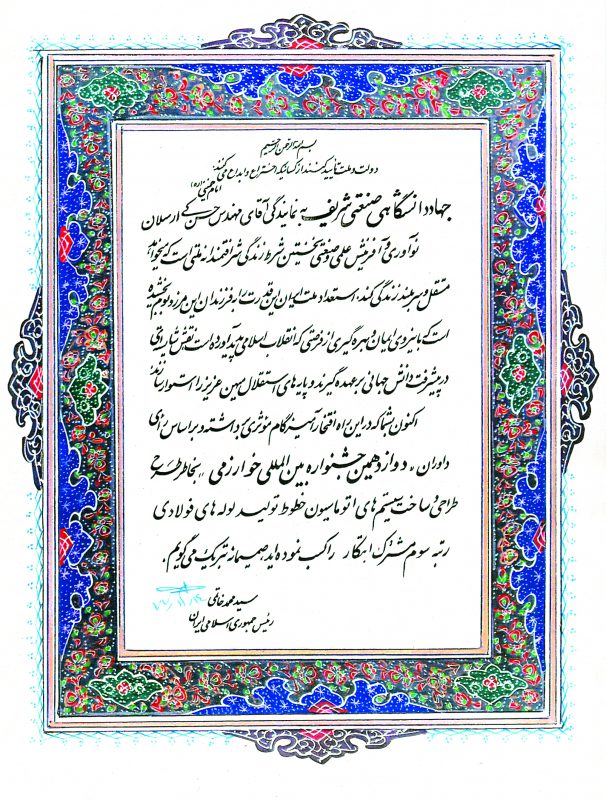 بسم الله الرحمن الرحیم
دولت و ملت تأیید کنند از کسانیکه اختراع و ابداع می کنند.
امام خمینی (ره)
جهاد دانشگاهی صنعتی شریف به نمایندگی آقای مهندس حسن کی ارسلان
نوآوری و آفرینش علمی و صنعتی نخستین شرط زندگی شرافتمندانه ملتی است که بخواهد
مستقل و سربلند زندگی کند، استعداد ملت ایران این قدرت را به فرزندان این مرز و بوم بخشیده
است که با نیروی ایمان و بهره گیری از فرصتی که انقلاب اسلامی پدید آورده است نقش شایسته ای
در پیشرفت دانش جهانی بر عهده گیرند و پایه های استقلال میهن عزیز را استوار سازند.
اکنون شما که در این راه افتخار آمیز گام مؤثری برداشته و بر اساس رای
داوران « دوازدهمین جشنواره بین المللی خوارزمی » بخاطر طرح
طراحی و ساخت سیستم های اتوماسیون خطوط تولید لوله های فولادی
رتبه سوم مشترک ابتکار را کسب نموده اید صمیمانه تبریک می گویم.
سید محمد خاتمی
رئیس جمهوری اسلامی ایران